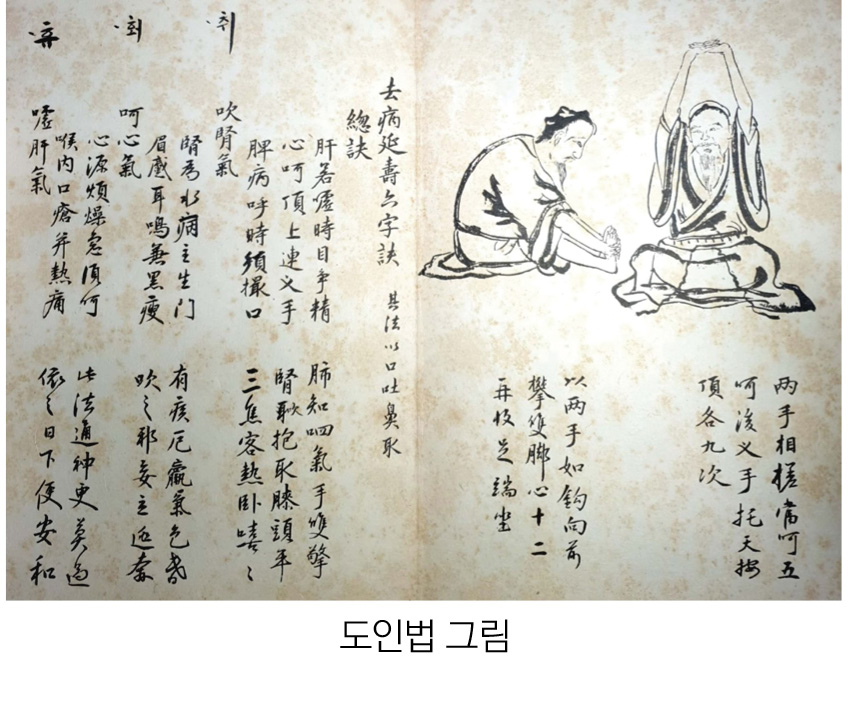 两手相搓當呵五
呵後叉手托天按
頂各九次
以两手如鉤向前
攀雙脚心十二
再收足端坐
去病延壽六字訣 其法以口吐鼻取
總訣
肝若噓時目爭精 肺知呬氣手雙擎
心呵頂上連叉手 腎吹抱取膝頭平
脾病呼時須撮口 三焦客熱卧嘻〻
취
吹腎氣
腎爲水病主生門 有疾尫羸氣色昏
眉蹙耳鳴兼黑瘦 吹之邪妄立逃奔
회
呵心氣
心源煩燥急須呵 此法通神更莫過
喉内口瘡并熱痛 依之日下便安和
휴
噓肝氣
도인법 그림